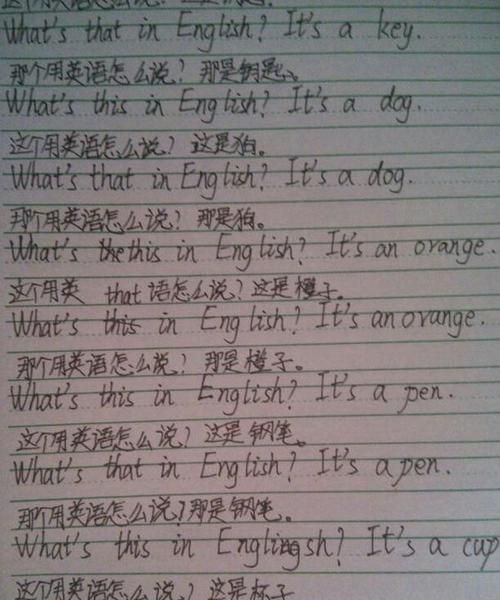 这个用英语怎么说?这是钥匙.
What's that in English? It's a key.
那个用英语怎么说?那是钥匙。
What's this in English? It's a dog.
这个用英语怎么说?这是狗。
What's that in English? It's a dog.
那个用英语怎么说?那是狗。
What's the this in English? It's an orange.
这个用英 that 语怎么说?这是橙子。
What's this in English? It's an orange.
那个用英语怎么说?那是橙子。
What's this in English? It's a pen.
这个用英语怎么说?这是钢笔。
What's that in English? It's a pen.
那个用英语怎么说?那是钢笔。
What's this in Englingsh? It's a cup
这个用英语怎么说?这是杯子